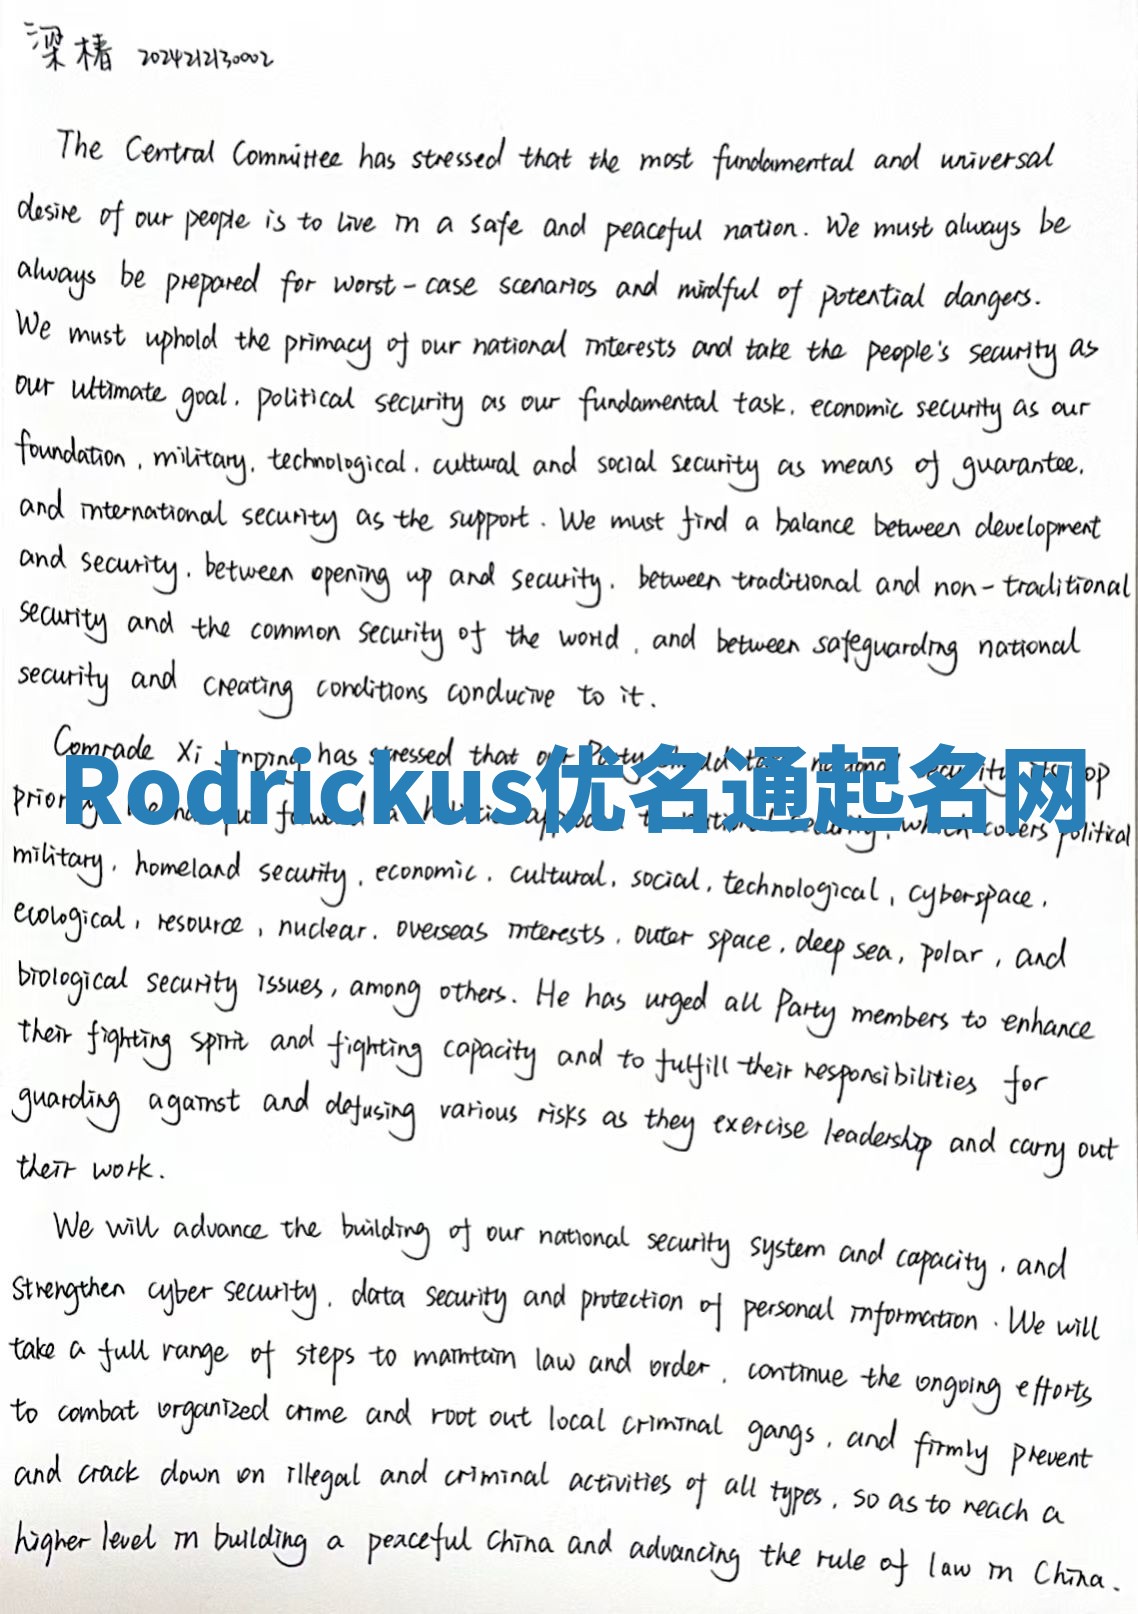 梁椿 2024212130002
The Central Committee has stressed that the most fundamental and universal
desire of our people is to live in a safe and peaceful nation. We must always be
always be prepared for worst-case scenarios and mindful of potential dangers.
We must uphold the primacy of our national interests and take the people's security as
our ultimate goal, political security as our fundamental task, economic security as our
foundation, military, technological, cultural and social security as means of guarantee,
and international security as the support. We must find a balance between development
and security, between opening up and security, between traditional and non-traditional
security and the common security of the world, and between safeguarding national
security and creating conditions conducive to it.
Comrade Xi Jinping has stressed that our Party national security its top
Rodrickus优名通起名网
which covers political
military, homeland security, economic, cultural, social, technological, cyberspace,
ecological, resource, nuclear, overseas interests, outer space, deep sea, polar, and
biological security issues, among others. He has urged all Party members to enhance
their fighting spirit and fighting capacity and to fulfill their responsibilities for
guarding against and defusing various risks as they exercise leadership and carry out
their work.
We will advance the building of our national security system and capacity, and
strengthen cyber security, data security and protection of personal information. We will
take a full range of steps to maintain law and order, continue the ongoing efforts
to combat organized crime and root out local criminal gangs, and firmly prevent
and crack down on illegal and criminal activities of all types, so as to reach a
higher level in building a peaceful China and advancing the rule of law in China.